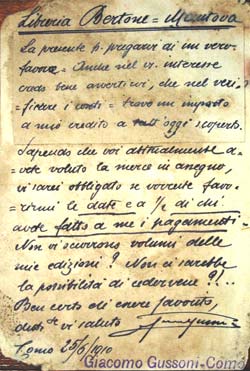 Libreria Bertone = Mantova
La presente p. pregarvi di un vero
favore = Anche nel vs. interesse
credo bene avvertirvi, che nel veri=
=ficare i conti = trovo un importo
a mio credito a tutt'oggi scoperto.
Sapendo che voi attualmente a=
=vete voluto la merce in assegno,
vi sarei obbligato se vorrete favo=
=rirmi le date e a ½ di chi
avete fatto a me i pagamenti.
Non vi occorrono volumi delle
mie edizioni? Non ci sarebbe
la possibilità di cedervene?!...
Ben certo di essere favorito,
vi saluto
Como 25/6/1910
Giacomo Gussoni-Como